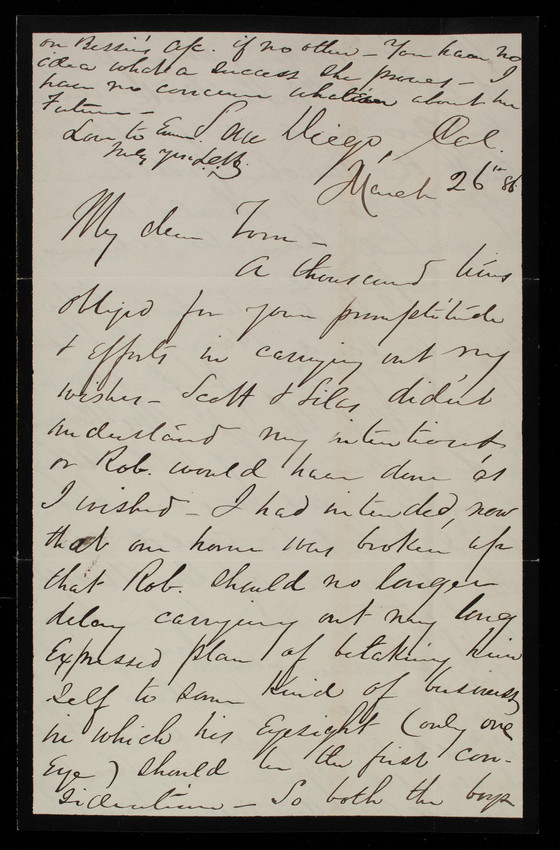 on Bessie's a/c. if no other – You have no
idea what a success she proves – I
have no concern whatever about her
Future –
Love to Emma.
Truly yrs
San Diego, Cal.
March 26th 86
My dear Tom –
A thousand times
obliged for your promptitude
& efforts in carrying out my
wishes – Scott & Silas didn't
understand my intentions
or Rob. would have done as
I wished – I had intended, now
that our home was broken up
that Rob. should no longer
delay carrying out my long
Expressed plan of betaking him
self to some Kind of business
in which his Eyesight (only one
Eye) should be the first con-
sideration – So both the boys